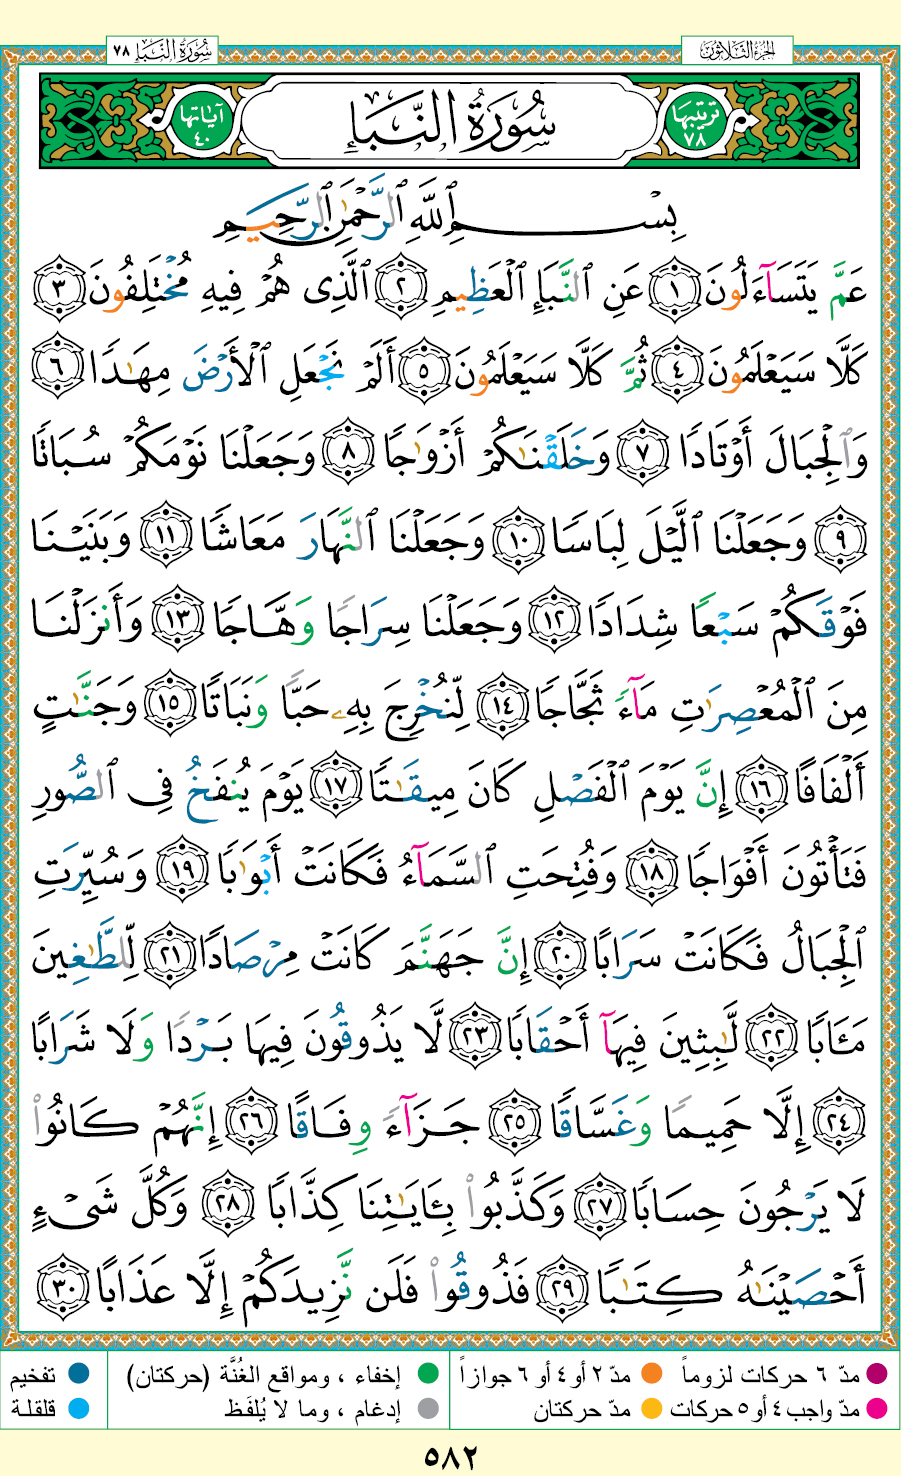 الجزء الثلاثون
سورة النبإ ٧٨
ترتيبها ٧٨
سُورَةُ النَّبَإِ
آياتها ٤٠
بِسْمِ ٱللَّهِ ٱلرَّحْمَٰنِ ٱلرَّحِيمِ
عَمَّ يَتَسَآءَلُونَ ١ عَنِ ٱلنَّبَإِ ٱلْعَظِيمِ ٢ ٱلَّذِى هُمْ فِيهِ مُخْتَلِفُونَ ٣
كَلَّا سَيَعْلَمُونَ ٤ ثُمَّ كَلَّا سَيَعْلَمُونَ ٥ أَلَمْ نَجْعَلِ ٱلْأَرْضَ مِهَٰدًا ٦
وَٱلْجِبَالَ أَوْتَادًا ٧ وَخَلَقْنَٰكُمْ أَزْوَٰجًا ٨ وَجَعَلْنَا نَوْمَكُمْ سُبَاتًا
٩ وَجَعَلْنَا ٱلَّيْلَ لِبَاسًا ١٠ وَجَعَلْنَا ٱلنَّهَارَ مَعَاشًا ١١ وَبَنَيْنَا
فَوْقَكُمْ سَبْعًا شِدَادًا ١٢ وَجَعَلْنَا سِرَاجًا وَهَّاجًا ١٣ وَأَنزَلْنَا
مِنَ ٱلْمُعْصِرَٰتِ مَآءً ثَجَّاجًا ١٤ لِّنُخْرِجَ بِهِۦ حَبًّا وَنَبَاتًا ١٥ وَجَنَّٰتٍ
أَلْفَافًا ١٦ إِنَّ يَوْمَ ٱلْفَصْلِ كَانَ مِيقَٰتًا ١٧ يَوْمَ يُنفَخُ فِى ٱلصُّورِ
فَتَأْتُونَ أَفْوَاجًا ١٨ وَفُتِحَتِ ٱلسَّمَآءُ فَكَانَتْ أَبْوَٰبًا ١٩ وَسُيِّرَتِ
ٱلْجِبَالُ فَكَانَتْ سَرَابًا ٢٠ إِنَّ جَهَنَّمَ كَانَتْ مِرْصَادًا ٢١ لِّلطَّٰغِينَ
مَـَٔابًا ٢٢ لَّٰبِثِينَ فِيهَآ أَحْقَابًا ٢٣ لَّا يَذُوقُونَ فِيهَا بَرْدًا وَلَا شَرَابًا
٢٤ إِلَّا حَمِيمًا وَغَسَّاقًا ٢٥ جَزَآءً وِفَاقًا ٢٦ إِنَّهُمْ كَانُوا۟
لَا يَرْجُونَ حِسَابًا ٢٧ وَكَذَّبُوا۟ بِـَٔايَٰتِنَا كِذَّابًا ٢٨ وَكُلَّ شَىْءٍ
أَحْصَيْنَٰهُ كِتَٰبًا ٢٩ فَذُوقُوا۟ فَلَن نَّزِيدَكُمْ إِلَّا عَذَابًا ٣٠
مدّ ٦ حركات لزوماً
مدّ ٢ أو ٤ أو ٦ جوازاً
إخفاء ، ومواقع الغُنَّة (حركتان)
تفخيم
مدّ واجب ٤ أو ٥ حركات
مدّ حركتان
إدغام ، وما لا يُلفَظ
قلقلة
٥٨٢